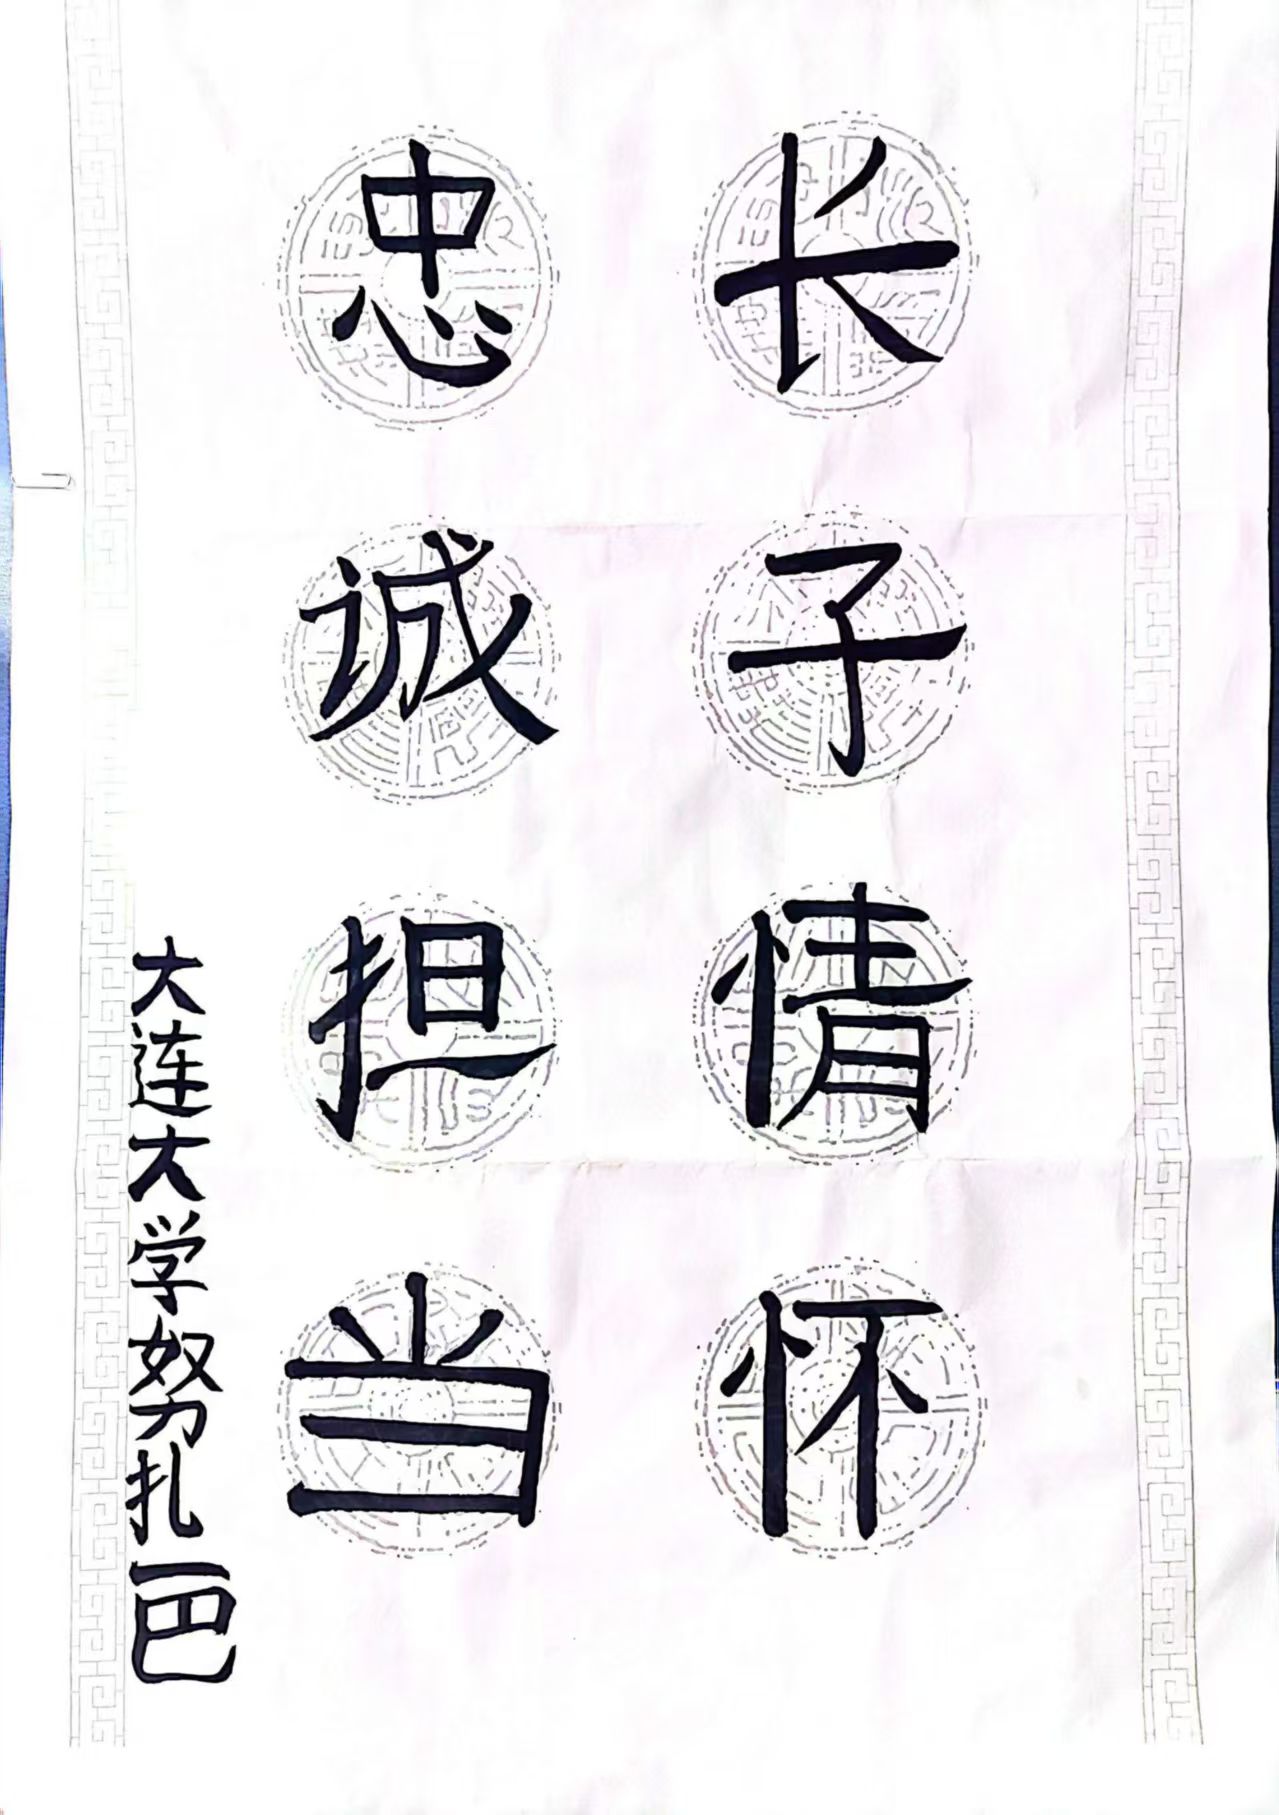 长子情怀
忠诚担当
大连大学努扎一巴